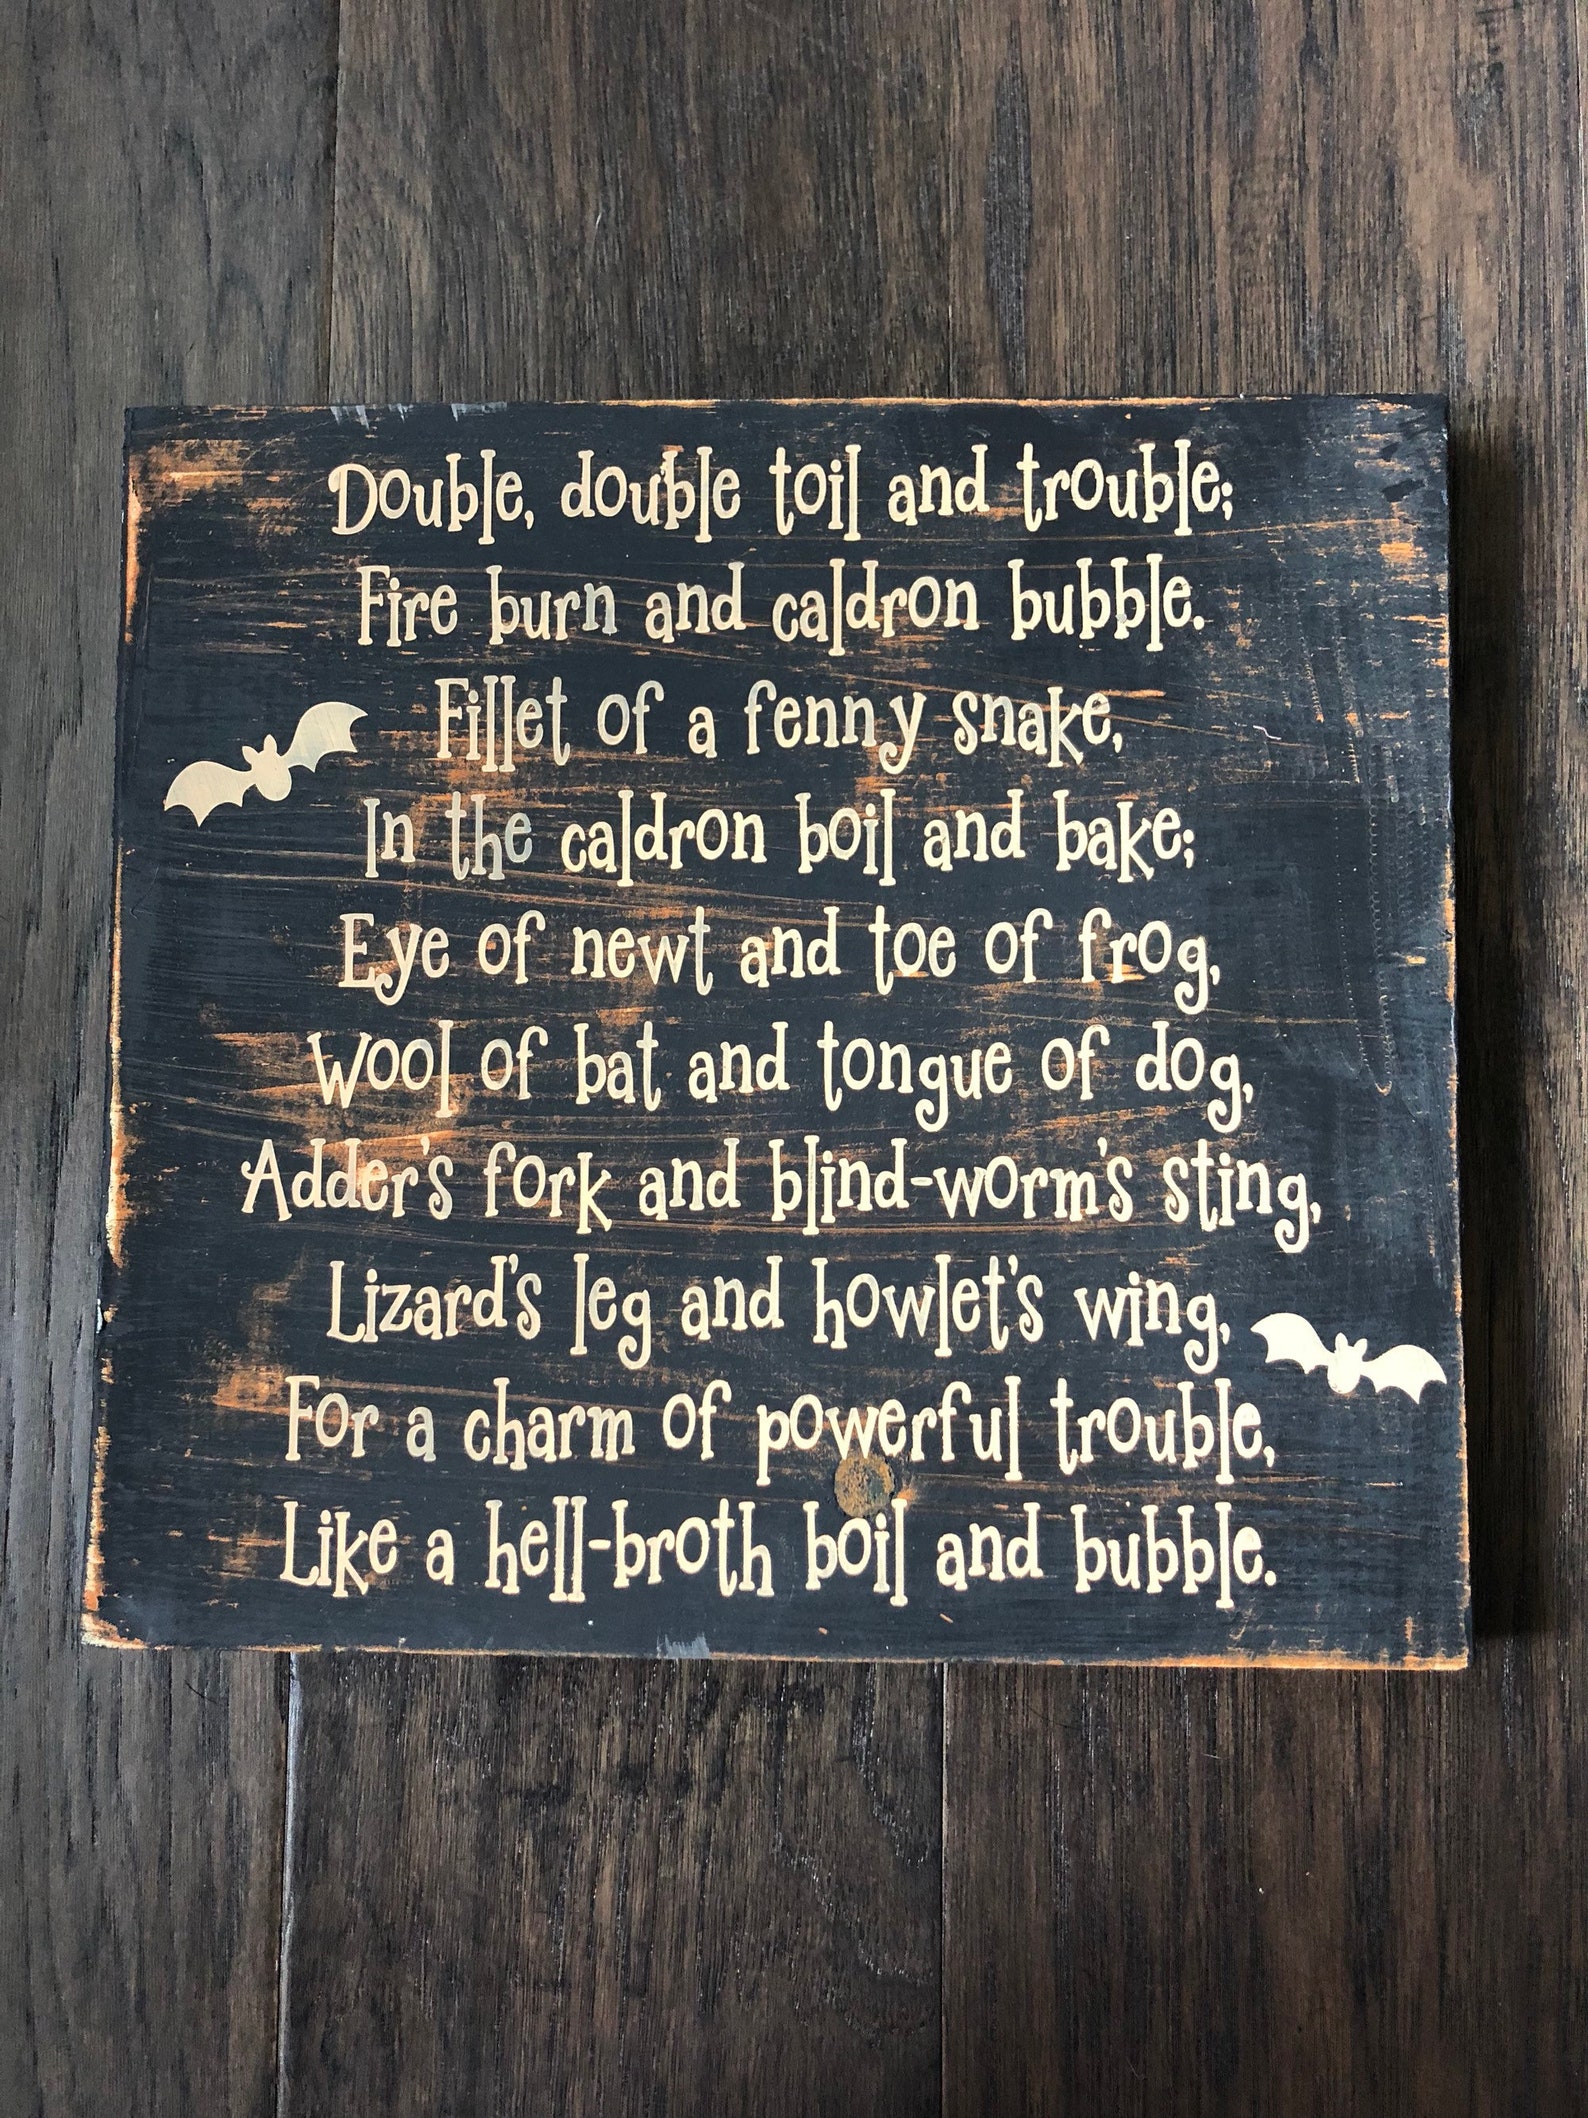 Double, double toil and trouble;
Fire burn and caldron bubble.
Fillet of a fenny snake,
In the caldron boil and bake;
Eye of newt and toe of frog,
Wool of bat and tongue of dog,
Adder's fork and blind-worm's sting,
Lizard's leg and howlet's wing,
For a charm of powerful trouble,
Like a hell-broth boil and bubble.